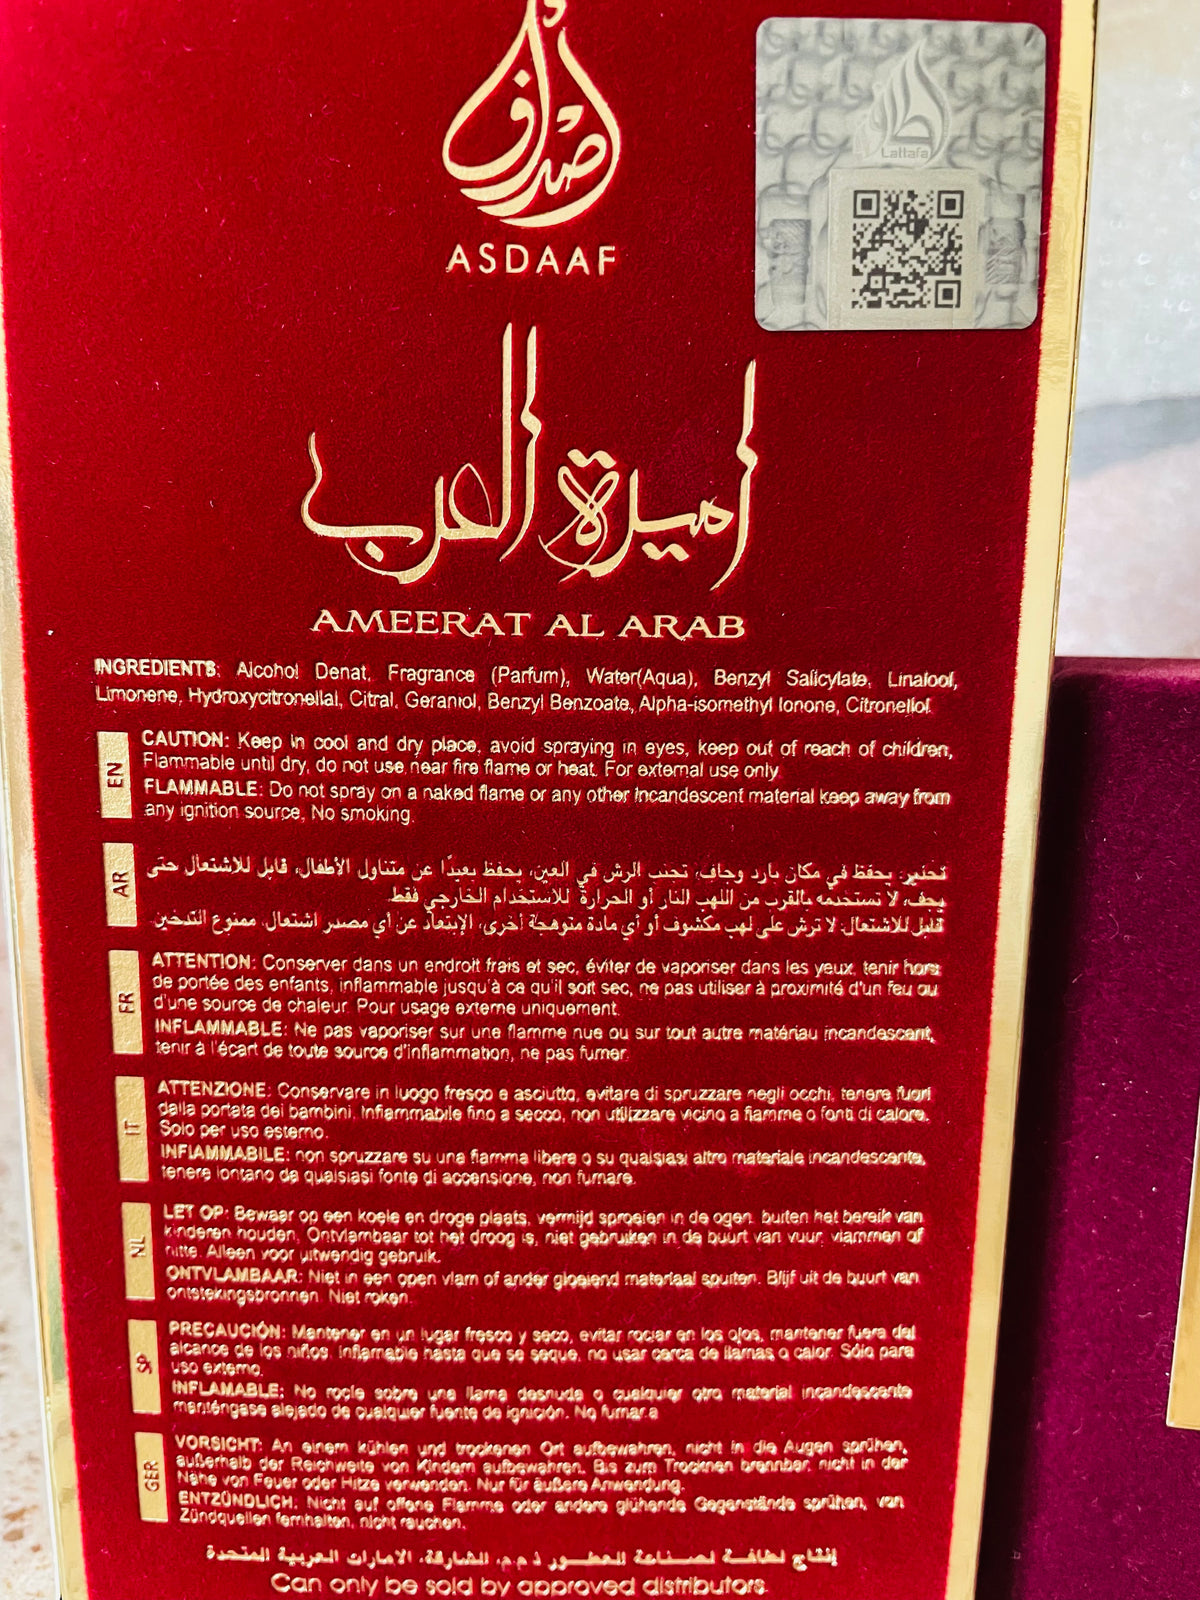 اصداف
ASDAAF
Lattafa
اميرة العرب
AMEERAT AL ARAB
INGREDIENTS: Alcohol Denat, Fragrance (Parfum), Water(Aqua), Benzyl Salicylate, Linalool,
Limonene, Hydroxycitronellal, Citral, Geraniol, Benzyl Benzoate, Alpha-isomethyl Ionone, Citronellol.
EN
CAUTION: Keep in cool and dry place, avoid spraying in eyes, keep out of reach of children,
Flammable until dry, do not use near fire flame or heat. For external use only.
FLAMMABLE: Do not spray on a naked flame or any other incandescent material keep away from
any ignition source, No smoking.
AR
تحذير: يحفظ في مكان بارد وجاف، تجنب الرش في العين، يحفظ بعيدًا عن متناول الأطفال، قابل للاشتعال حتى
يجف، لا تستخدمه بالقرب من اللهب النار أو الحرارة. للاستخدام الخارجي فقط.
قابل للاشتعال: لا ترش على لهب مكشوف أو أي مادة متوهجة أخرى، الإبتعاد عن أي مصدر اشتعال، ممنوع التدخين.
FR
ATTENTION: Conserver dans un endroit frais et sec, éviter de vaporiser dans les yeux, tenir hors
de portée des enfants, inflammable jusqu'à ce qu'il soit sec, ne pas utiliser à proximité d'un feu ou
d'une source de chaleur. Pour usage externe uniquement.
INFLAMMABLE: Ne pas vaporiser sur une flamme nue ou sur tout autre matériau incandescent,
tenir à l'écart de toute source d'inflammation, ne pas fumer.
IT
ATTENZIONE: Conservare in luogo fresco e asciutto, evitare di spruzzare negli occhi, tenere fuori
dalla portata dei bambini. Infiammabile fino a secco, non utilizzare vicino a fiamme o fonti di calore.
Solo per uso esterno.
INFIAMMABILE: non spruzzare su una fiamma libera o su qualsiasi altro materiale incandescente,
tenere lontano da qualsiasi fonte di accensione, non fumare.
NL
LET OP: Bewaar op een koele en droge plaats, vermijd sproeien in de ogen, buiten het bereik van
kinderen houden, Ontvlambaar tot het droog is, niet gebruiken in de buurt van vuur, vlammen of
hitte. Alleen voor uitwendig gebruik.
ONTVLAMBAAR: Niet in een open vlam of ander gloeiend materiaal spuiten. Blijf uit de buurt van
ontstekingsbronnen. Niet roken.
SP
PRECAUCIÓN: Mantener en un lugar fresco y seco, evitar rociar en los ojos, mantener fuera del
alcance de los niños. Inflamable hasta que se seque, no usar cerca de llamas o calor. Sólo para
uso externo.
INFLAMABLE: No rocíe sobre una llama desnuda o cualquier otro material incandescente
manténgase alejado de cualquier fuente de ignición. No fumar.a
GER
VORSICHT: An einem kühlen und trockenen Ort aufbewahren, nicht in die Augen sprühen,
außerhalb der Reichweite von Kindern aufbewahren. Bis zum Trocknen brennbar, nicht in der
Nähe von Feuer oder Hitze verwenden. Nur für äußere Anwendung.
ENTZÜNDLICH: Nicht auf offene Flamme oder andere glühende Gegenstände sprühen, von
Zündquellen fernhalten, nicht rauchen.
إنتاج لطافة لصناعة العطور ذ.م.م، الشارقة، الامارات العربية المتحدة
Can only be sold by approved distributors.